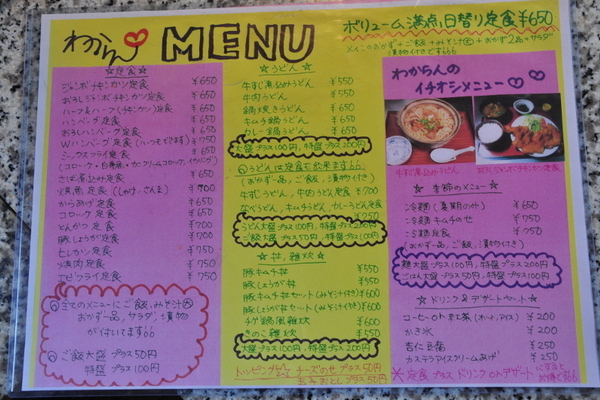 わからん MENU
ボリューム満点、日替り定食¥650
メインのおかず+ご飯+みそ汁+おかず2品+サラダ
漬物付きです
☆定食☆
ジャンボチキンカツ定食 ¥650
おろしジャンボチキンカツ定食 ¥650
ハーフ&ハーフ(チキンカツ)定食 ¥650
ハンバーグ定食 ¥650
おろしハンバーグ定食 ¥650
Wハンバーグ定食 ¥750
ミックスフライ定食 ¥650
さば煮込み定食 ¥650
焼魚定食(しゃけ、さんま) ¥700
からあげ定食 ¥650
コロッケ定食 ¥650
とんかつ定食 ¥700
豚しょうが定食 ¥700
ヒレカツ定食 ¥750
焼肉定食 ¥750
エビフライ定食 ¥750
全てのメニューにご飯、みそ汁
おかず一品、サラダ、漬物
が付いてます
ご飯大盛 プラス50円
特盛 プラス100円
☆うどん☆
牛すじ煮込みうどん ¥550
牛肉うどん ¥550
鍋焼きうどん ¥650
キムチ鍋うどん ¥650
カレー鍋うどん ¥650
大盛プラス100円、特盛プラス200円
うどんは定食も出来ます
(おかず一品、ご飯、漬物付)
牛すじうどん、牛肉うどん定食 ¥700
なべうどん、キムチうどん カレーうどん定食
うどん大盛プラス100円、特盛プラス200円
ご飯大盛プラス50円、特盛プラス100円
☆丼、雑炊☆
豚キムチ丼 ¥550
豚しょうが丼 ¥550
豚キムチ丼セット(みそ汁付き) ¥600
豚しょうが丼セット(みそ汁付き) ¥600
チゲ鍋風雑炊 ¥600
きのこ雑炊 ¥550
大盛プラス100円、特盛プラス200円
トッピング チーズのせ プラス50円
わからんの
イチオシメニュー
牛すじ煮込みうどん
おろしジャンボチキンカツ定食
☆季節のメニュー☆
冷麺(夏期のみ) ¥650
冷麺キムチのせ ¥750
冷麺定食 ¥750
(おかず一品、ご飯、漬物付き)
麺大盛プラス100円、特盛プラス200円
ごはん大盛プラス50円、特盛プラス100円
☆ドリンク&デザートセット☆
コーヒーor紅茶(ホット、アイス) ¥200
かき氷 ¥200
杏仁豆腐 ¥250
カステラアイスクリームあげ ¥250
定食プラスドリンクorデザート